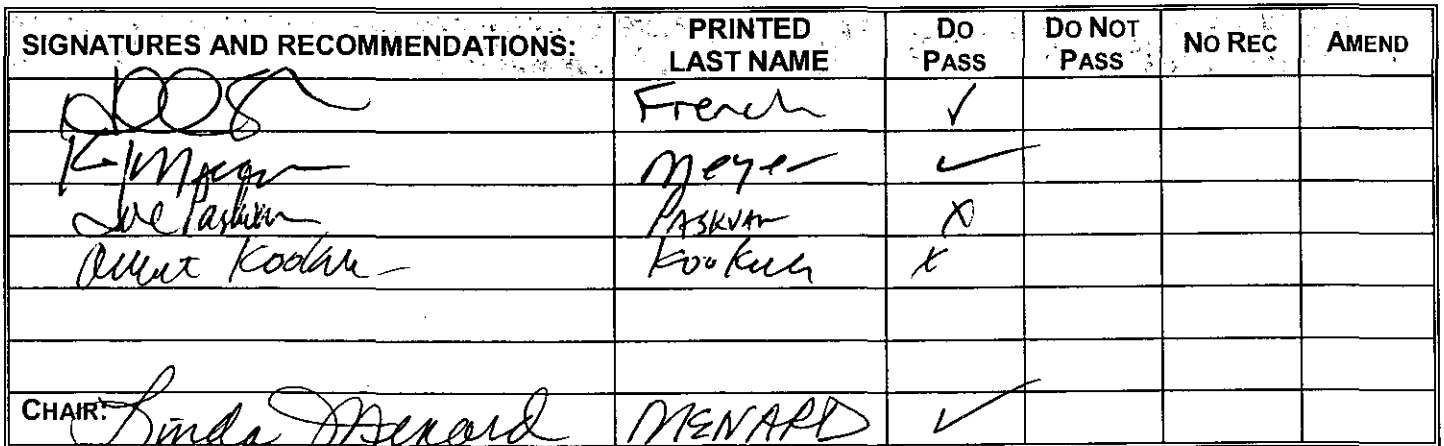 SIGNATURES AND RECOMMENDATIONS: PRINTED LAST NAME DO PASS DO NOT PASS NO REC AMEND
French ✓
Meyer ✓
Joe Paskvan PASKVAN X
Kookesh X
CHAIR: Linda Menard MENARD ✓